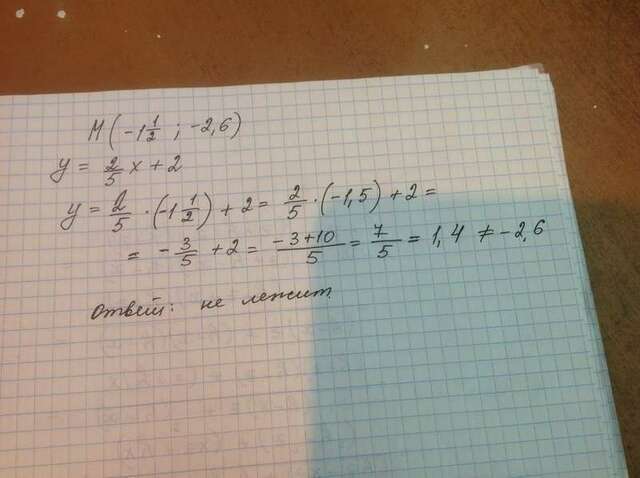 M ( -1 1/2 ; -2,6)
y = 2/5 x + 2
y = 2/5 · (-1 1/2) + 2 = 2/5 · (-1,5) + 2 =
= - 3/5 + 2 = -3+10/5 = 7/5 = 1,4 ≠ -2,6
Ответ: не лежит.